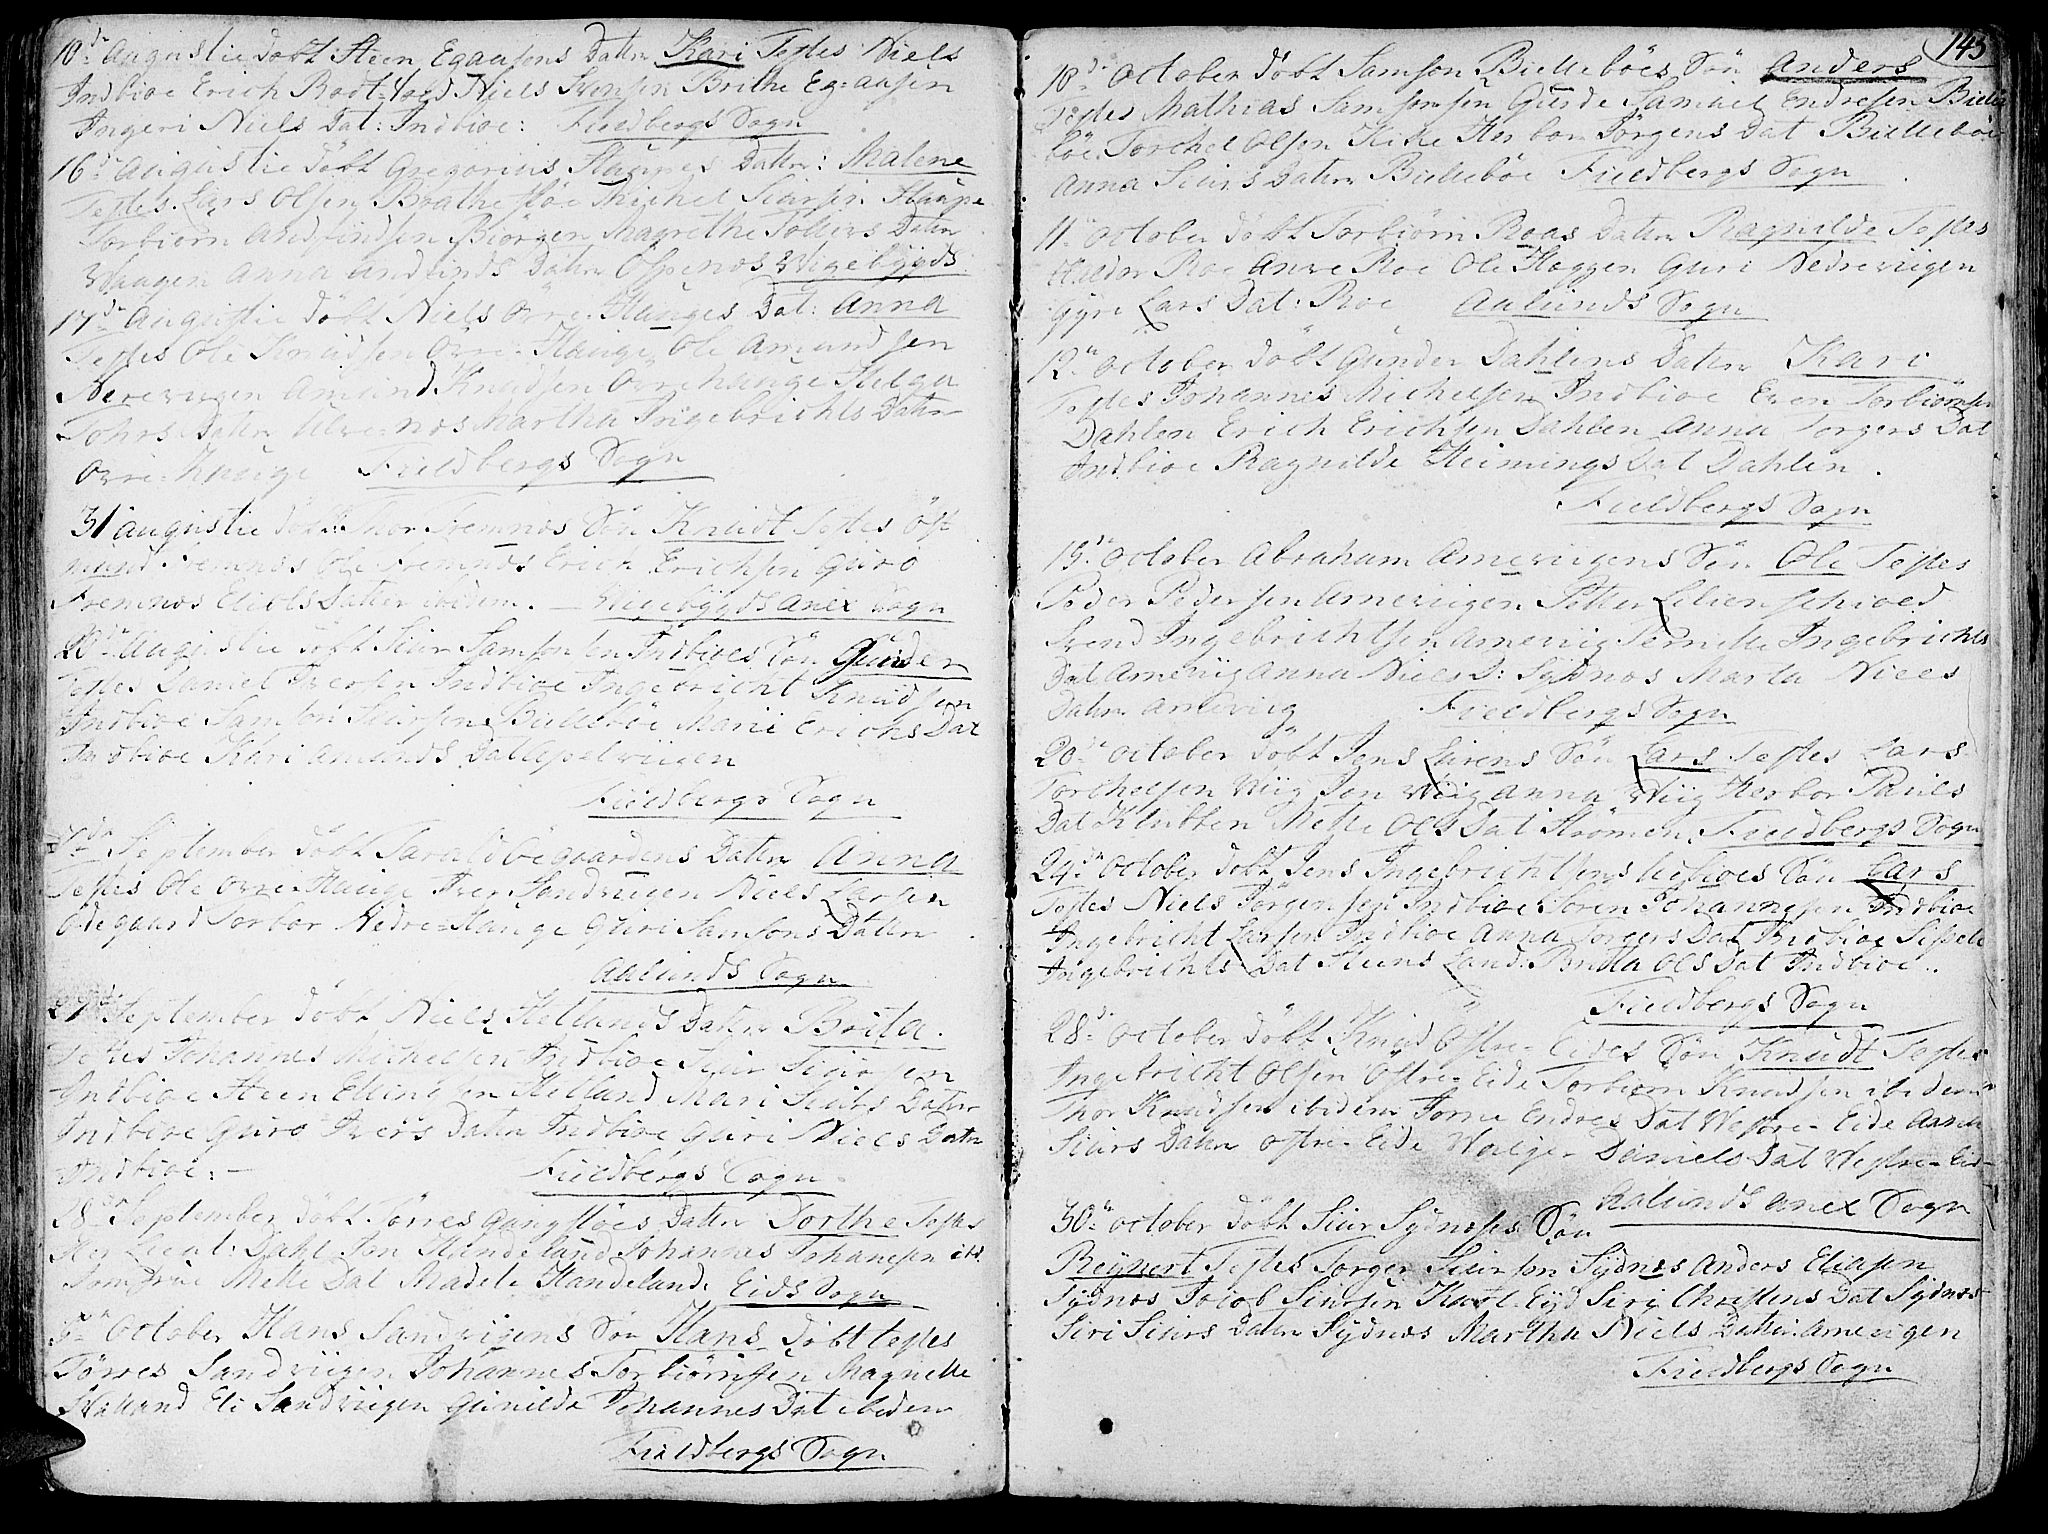 10de Augustie döbt Steen Egaasens Datter Kari Testes Niels
Indbioe Erich Niels Svensen Brithe Eg=aasen
Ingeri Niels Dat: Indbioe: Fieldbergs Sogn
16de Augustie döbt Gregorius Datter: Malene
Testes Lars Olsen Michel Siursen
Torbiorn Andfindsen Biörgen Magrethe Datter
Waagen Anna Andfinds Datter Ospenos Wigebÿgds
17de Augustie döbt Niels Ovre Hauges Dat: Anna
Testes Ole Knudsen Ovre=Hauge Ole Amundsen
Nereviigen Amund Knudsen Ovre Hauge Helga
Tohrs Datter Ulve=nos Martha Ingebrichts Datter
Ovre=Hauge Fieldbergs Sogn
31 Augustie döbt Thor Fremnes Sön Knudt Testes Öst
mund Fremnos Ole Fremnos Erich Erichsen Guro
Fremnos Datter ibidem. Wigebÿgds Anex Sogn
Augustie döbt Siur Samsonsen Indbioes Sön Gunder
Testes Daniel Iversen Indbioe Ingebricht Knudsen
Indbioe Samson Siursen Bielleböe Marie Erichs Dat
Indbioe Kari Amunds Dat Apelviigen
Fieldbergs Sogn
September döbt Tarald Ödegaardens Datter Anna
Testes Ole Ovre=Hauge Iver Sandviigen Niels Larsen
Ödegaard Torbor Nedre=Hauge Guri Samsons Datter
Aalunds Sogn
27de September döbt Niels Hellands Datter Brita.
Testes Johannes Michelsen Indbioe Siur Siursen
Indbioe Steen Ellingsen Helland Mari Siurs Datter
Indbioe Guro Ivers Datter Indbioe Guri Niels Datter
Indbioe:— Fieldbergs Sogn
28de September döbt Törres Gangstöes Datter Dorthe Testes
Her Lieut: Dahl Jon Handeland Johannes Johanesen ibd.
Jomfrue Mette Dahl Madele Handeland. Eids Sogn
5te October Hans Sandvigens Sön Hans döbt testes
Törres Sandviigen Johannes Torbiörnsen Magnelle
Halland Eli Sandviigen Gunilde Johannes Dat ibidem
Fieldbergs Sogn
145
10de October döbt Samson Bielleböes Sön Anders
Testes Mathias Samsonsen Giærde Samuel Endresen Bielle
böe Torchel Olsen Herbor Jörgens Dat Bielleböe
Anna Siurs Datter Bielleböe Fieldbergs Sogn
11te October döbt Torbiörn Roas Datter Ragnilde Testes
Haldor Roe Anve Roe Ole Haggen Guri Nedreviigen
Gÿri Lars Dat: Roe Aalunds Sogn
12te October döbt Gunder Dahlens Datter Kari
Testes Johannes Michelsen Indbioe Even Torbiörnsen
Dahlen Erich Erichsen Dahlen Anna Torgers Dat
Indbioe Ragnilde Heimings Dat Dahlen.
Fieldbergs Sogn
15te October Abraham Ameviigens Sön Ole Testes
Peder Pedersen Ameviigen Petter Lilienschiold
Svend Ingebrichtsen Ameviig Pernille Ingebrichts
Dat Ameviig Anna Niels D: Sÿdnos Marta Niels
Datter Ameviig Fieldbergs Sogn
20de October döbt Jens Lurens Sön Lars Testes Lars
Torchelsen Wiig Jon Wiig Anna Wiig Herbor Pauls
Dat Klubben Mette Ols Dat Strömen Fieldbergs Sogn
24de October döbt Jens Ingebrichtsens Indbioes Sön Lars
Testes Niels Jörgensen Indbioe Sören Johannesen Indbioe
Ingebricht Larsen Indbioe Anna Torgers Dat Indbioe Sissele
Ingebrichts Dat Steens Land Britta Ols Dat Indbioe..
Fieldbergs Sogn
28de October döbt Knud Östre-Eides Sön Knudt Testes
Ingebricht Olsen Östre=Eide Torbiorn Knudsen ibidem
Thor Knudsen ibidem Endres Dat Westre-Eide Anna
Siurs Datter Ostre-Eide Daniels Dat Westre=Eid-
Aalunds Anex Sogn
30te October döbt Siur Sÿdneses Sön
Reÿnert Testes Torger Siursen Sÿdnos Anders Eliasen
Sÿdnos Jacob Siursen Eÿd Siri Christens Dat Sÿdnes
Siri Siurs Datter Sÿdnos Martha Niels Datter Amevigen
Fieldbergs Sogn